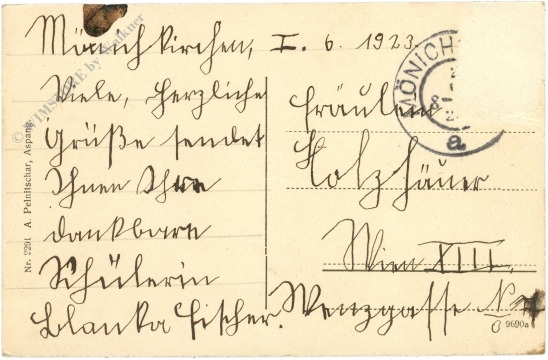 Mönichkirchen, I. 6. 1923.
Viele, herzliche
Grüße sendet
Ihnen Ihre
dankbare
Schülerin
Blanka Fischer.
Fräulein
Holzhäuer
Wien XIII.
Wenzgasse N
MÖNICH
a
Nr. 2291 A. Pelnitschar, Aspang.
9690a